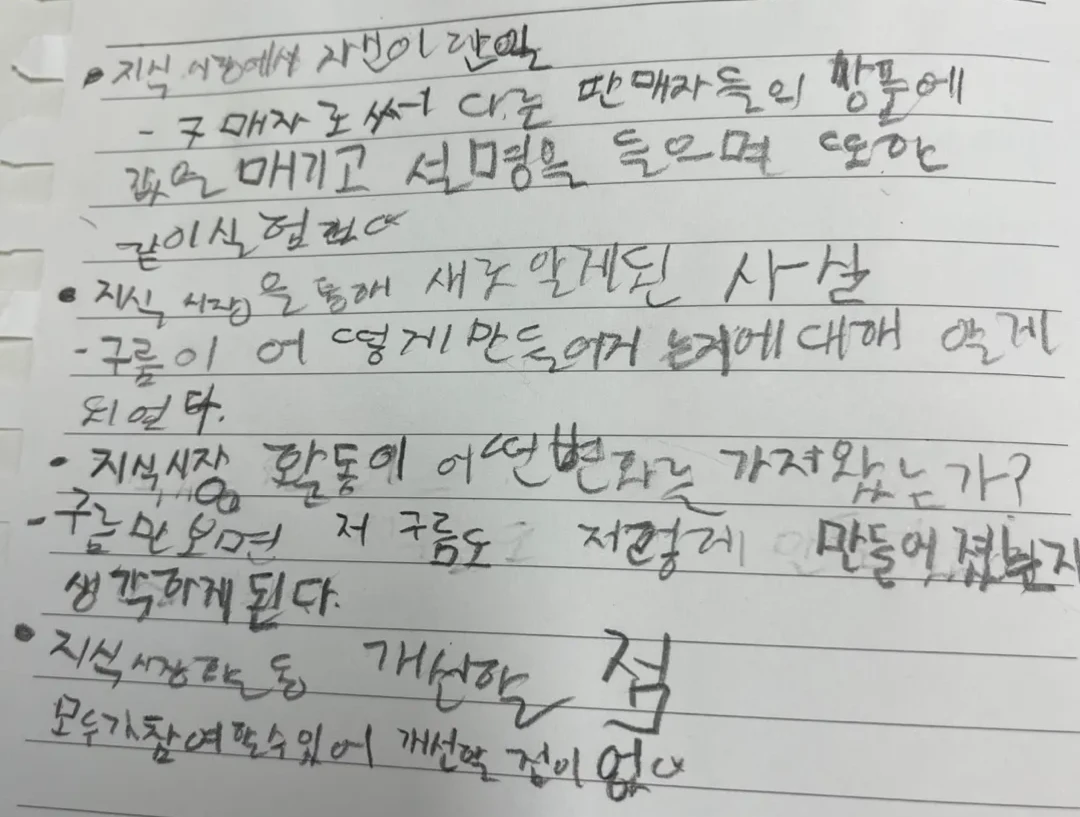 • 지식 시장에서 자신이 한일
- 구매자로써 다른 판매자들의 상품에
값을 매기고 설명을 들으면 또한
같이 실험 했다
• 지식 시장을 통해 새롯 알게된 사실
- 구름이 어떻게 만들어지는지에 대해 알게
되었다.
• 지식시장 활동이 어떤변화를 가져왔는가?
- 구름만 보면 저 구름도 저렇게 만들어졌는지
생각하게 된다.
• 지식시장활동 개선할 점
모두가참여할수있어 개선할 점이 없다